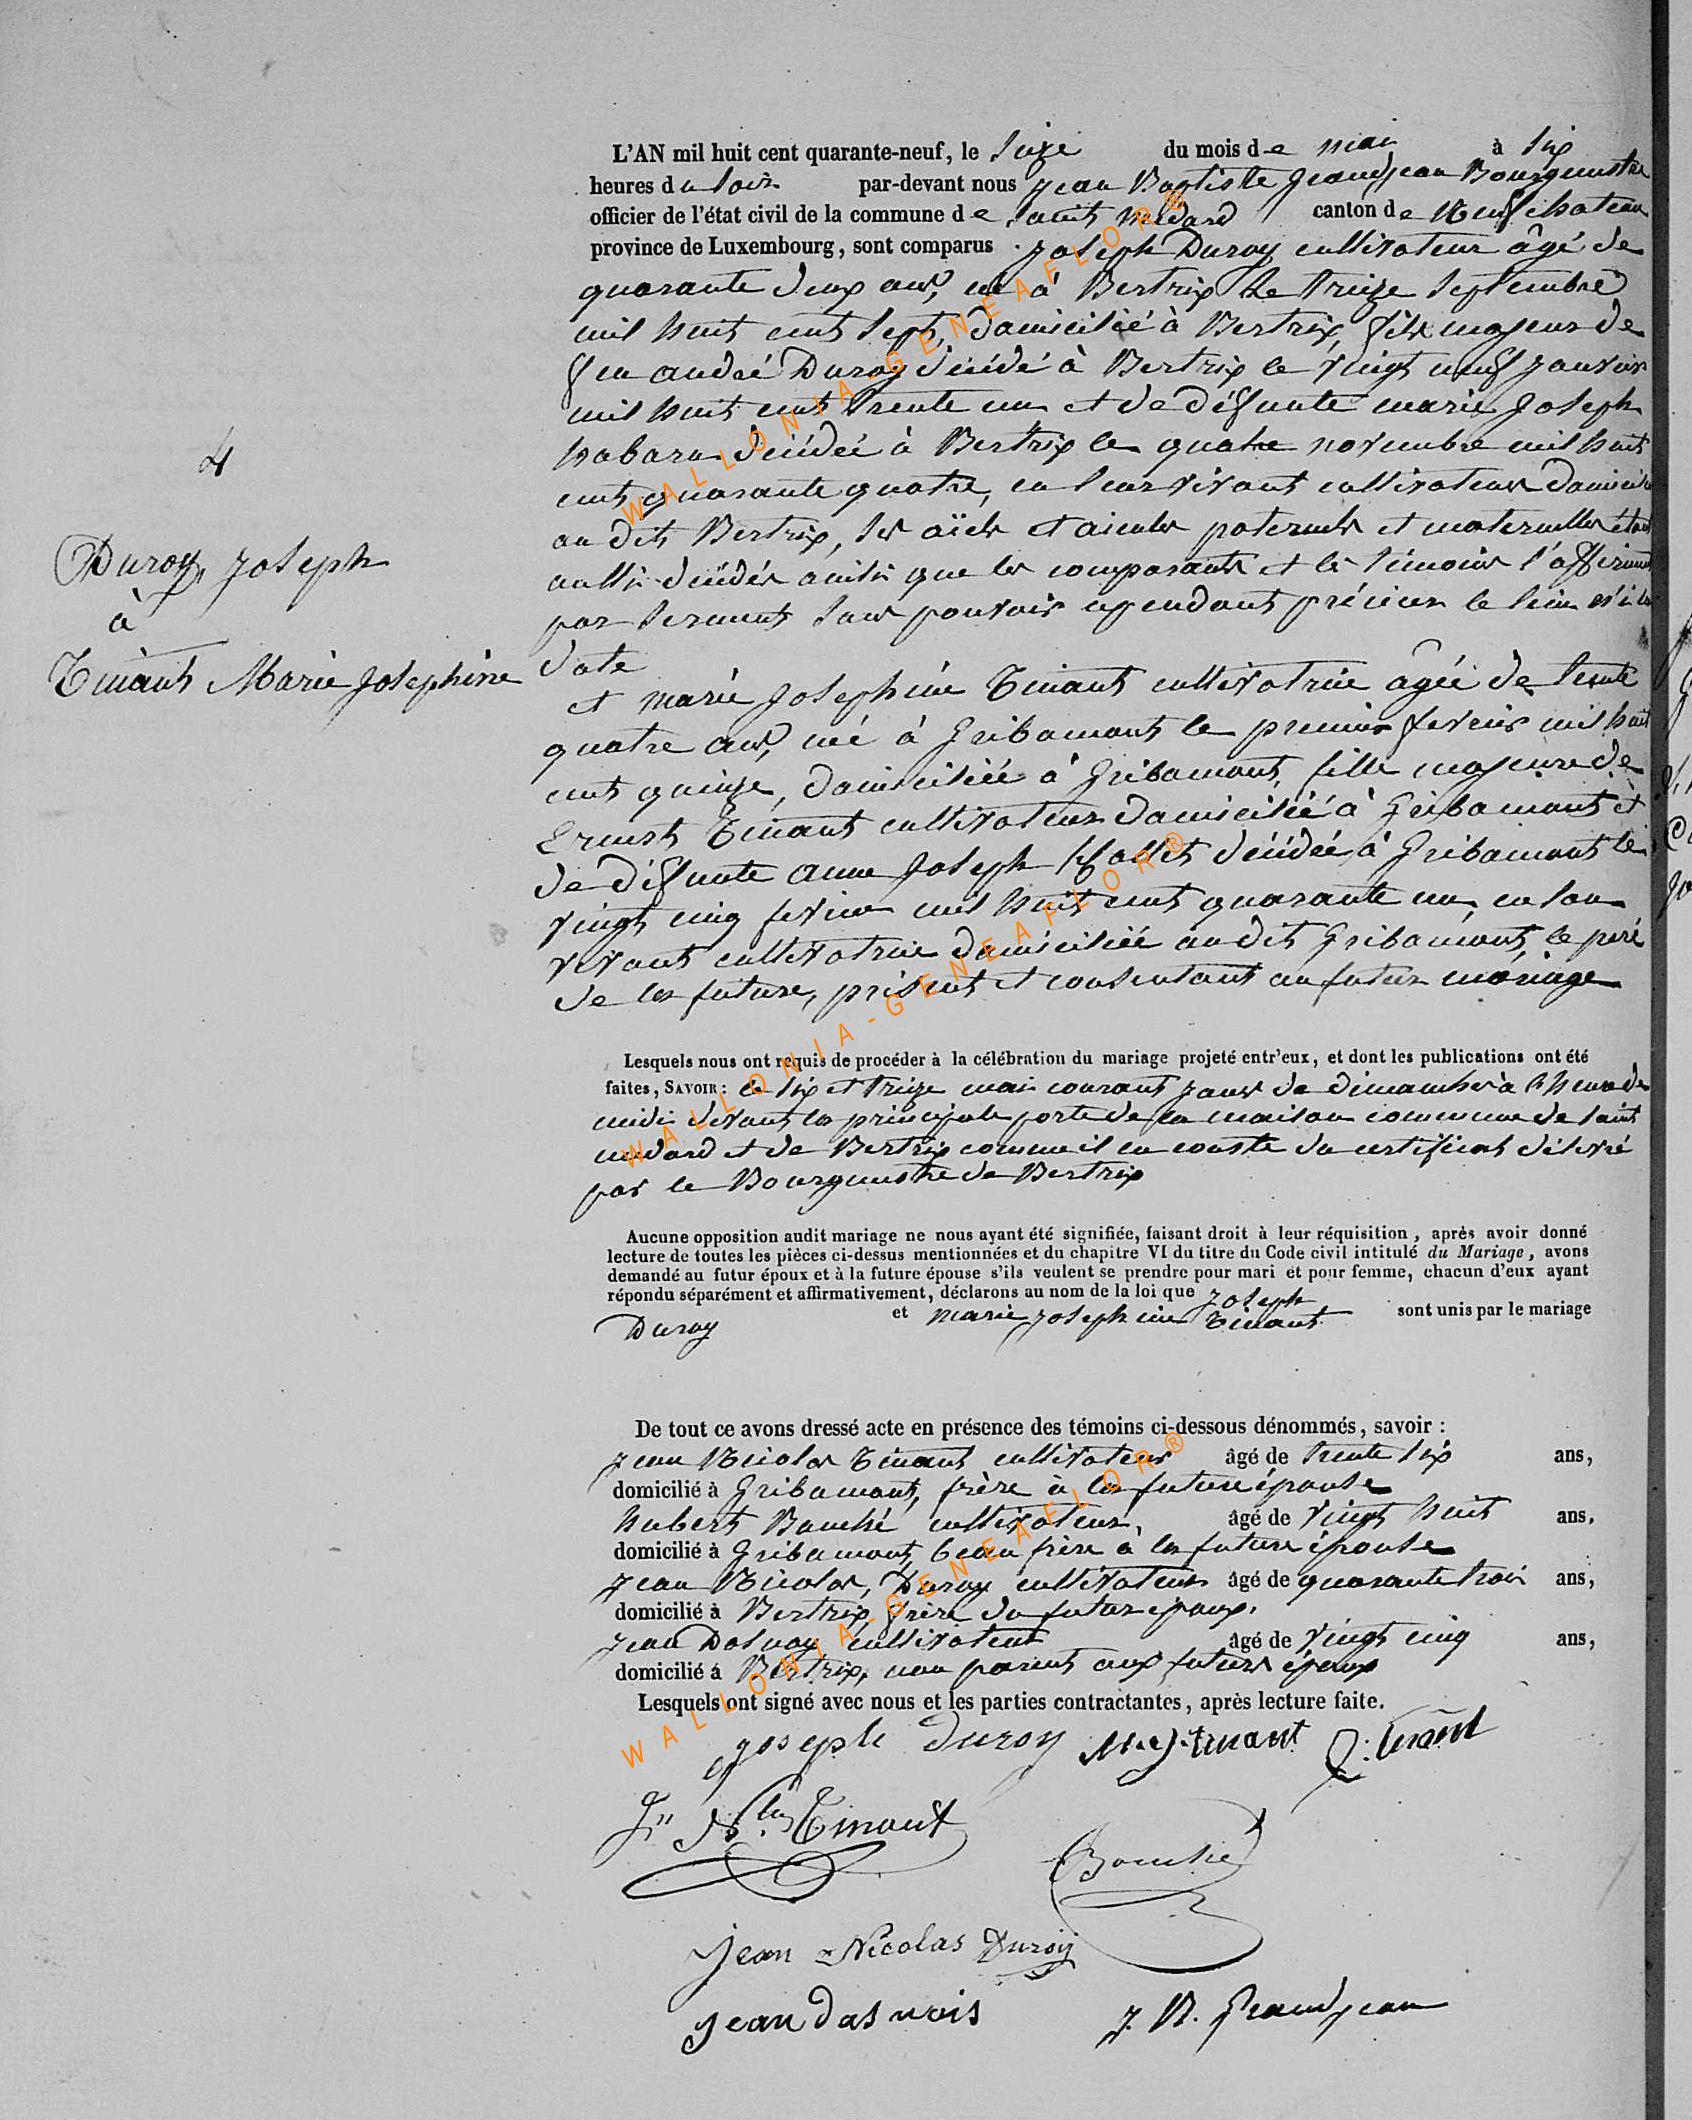 L'AN mil huit cent quarante-neuf, le seize du mois de mai à six
heures du soir par-devant nous Jean Baptiste Grandjean Bourgmestre
officier de l'état civil de la commune de saint Médard canton de Neufchateau
province de Luxembourg, sont comparus Joseph Duroy cultivateur âgé de
quarante deux ans, né à Bertrix le treize septembre
mil huit cent sept, domicilié à Bertrix, fils majeur de
feu andré Duroy décédé à Bertrix le vingt neuf janvier
mil huit cent trente un et de défunte marie Joseph
habaru décédée à Bertrix le quatre novembre mil huit
cent quarante quatre, en leur vivant cultivateurs domiciliés
au dit Bertrix, ses aïels et aieules paternels et maternelles étant
aussi décédés ainsi que les comparants et les témoins l'affirment
par serment sans pouvoir cependant préciser le lieu ni la
4
Duroy, Joseph
à
Tinant Marie Josephine
date
et marie Josephine Tinant cultivatrice âgée de trente
quatre ans, né à Gribamont le premier fevrier mil huit
cent quinze, domiciliée à Gribamont, fille majeure de
Ernest Tinant cultivateur domicilié à Gribamont et
de défunte anne Joseph décédée à Gribamont le
vingt cinq fevrier mil huit cent quarante un, en son
vivant cultivatrice domiciliée au dit Gribamont, le père
de la future, présent et consentant au futur mariage
Lesquels nous ont requis de procéder à la célébration du mariage projeté entr'eux, et dont les publications ont été
faites, SAVOIR: le six et treize mai courant jours de dimanche à l'heure de
midi devant la principale porte de la maison commune de saint
medard et de Bertrix comme il en conste du certificat délivré
par le Bourgmestre de Bertrix
Aucune opposition audit mariage ne nous ayant été signifiée, faisant droit à leur réquisition, après avoir donné
lecture de toutes les pièces ci-dessus mentionnées et du chapitre VI du titre du Code civil intitulé du Mariage, avons
demandé au futur époux et à la future épouse s'ils veulent se prendre pour mari et pour femme, chacun d'eux ayant
répondu séparément et affirmativement, déclarons au nom de la loi que Joseph
Duroy et marie Josephine Tinant sont unis par le mariage
De tout ce avons dressé acte en présence des témoins ci-dessous dénommés, savoir :
Jean Nicolas Tinant cultivateur âgé de trente six ans,
domicilié à Gribamont, frère à la future épouse
hubert Bouché cultivateur, âgé de vingt huit ans,
domicilié à Gribamont, beau frère à la future épouse
Jean Nicolas, Duroy cultivateur âgé de quarante trois ans,
domicilié à Bertrix, frère du futur époux,
Jean Dasnoy cultivateur âgé de vingt cinq ans,
domicilié à Bertrix, non parent aux futurs époux
Lesquels ont signé avec nous et les parties contractantes, après lecture faite.
joseph duroy M.J.tinant E: tinant
Jn Nlas Tinant
Bouché
Jean Nicolas Duroy
jean dasnois J. B. Grandjean
WALLONIA-GENEAFLOR®
WALLONIA-GENEAFLOR®
WALLONIA-GENEAFLOR®